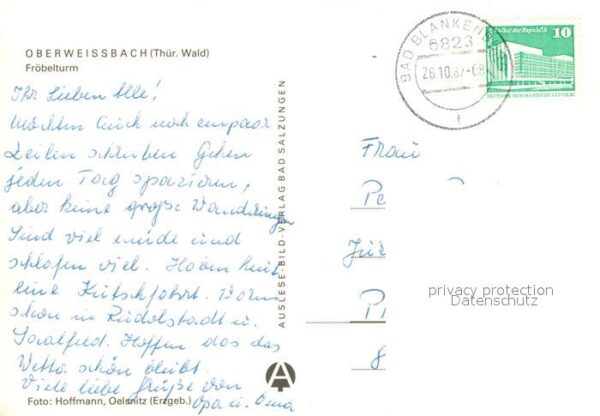 OBERWEISSBACH (Thür. Wald)
Fröbelturm
Ihr Lieben Alle!
Möchten Euch noch ein paar
Zeilen schreiben. Gehen
jeden Tag spazieren,
aber keine große Wanderungen
Sind viel müde und
schlafen viel. Haben heut
eine Kutschfahrt. Waren
schon in Rudolstadt u.
Saalfeld. Hoffen das das
Wetter schön bleibt.
Viele liebe Grüße von
Opa u. Oma
Foto: Hoffmann, Oelsnitz (Erzgeb.)
AUSLESE-BILD-VERLAG BAD SALZUNGEN
BAD BLANKENBURG
6823
26.10.87-08
f
Palast der Republik
10
DEUTSCHE DEMOKRATISCHE REPUBLIK
Frau
Pe
Jür
8
privacy protection
Datenschutz